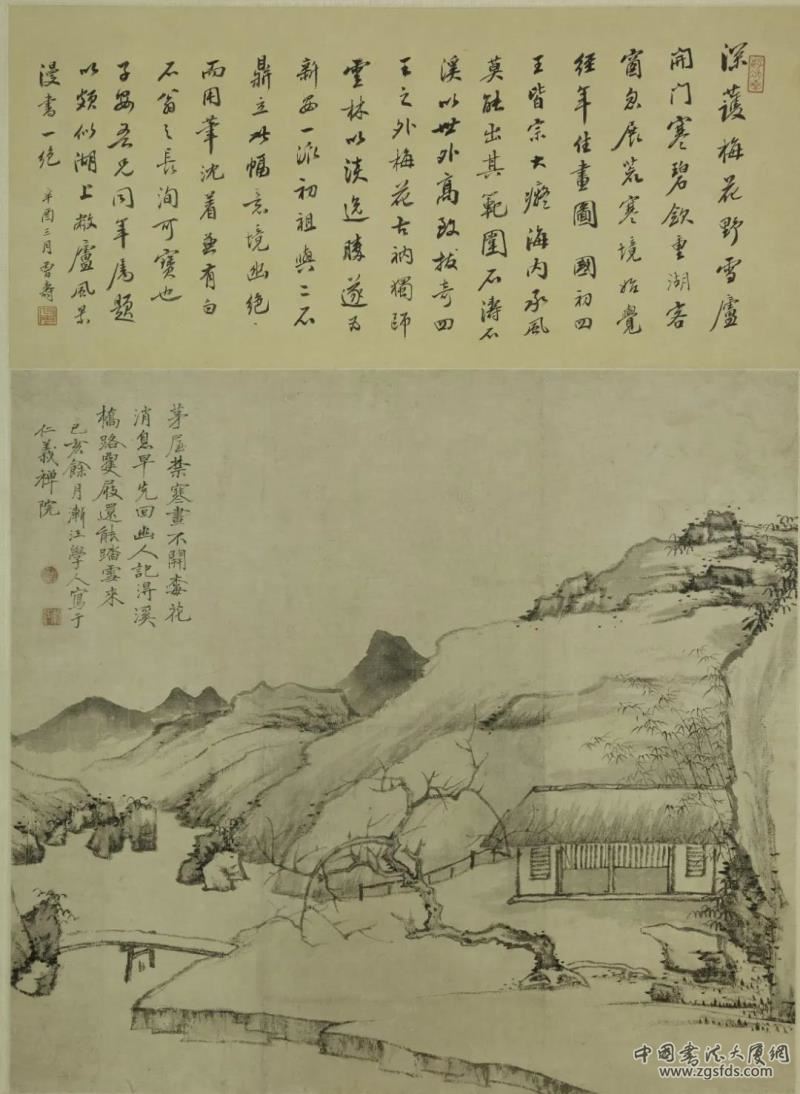 深護梅花野雪廬
開門寒碧欲重湖客
窗忽展荒寒境始覺
經年住畫圖國初四
王皆宗大癡海內承風
莫能出其範圍石濤石
溪以世外高致拔奇四
王之外梅花古衲獨師
雲林以淡逸勝遂爲
新安一派初祖與二石
鼎立此幅意境幽絕
而用筆沈着兼有白
石翁之長洵可寶也
子安吾兄同年屬題
以頗似湖上敝廬風景
漫書一絕 辛酉三月曾壽
茅屋禁寒晝不開梅花
消息早先回幽人記得溪
橋路雙屐還能踏雪來
己亥餘月漸江學人寫于
仁義禪院
中国书法大厦網
www.zgsfds.com